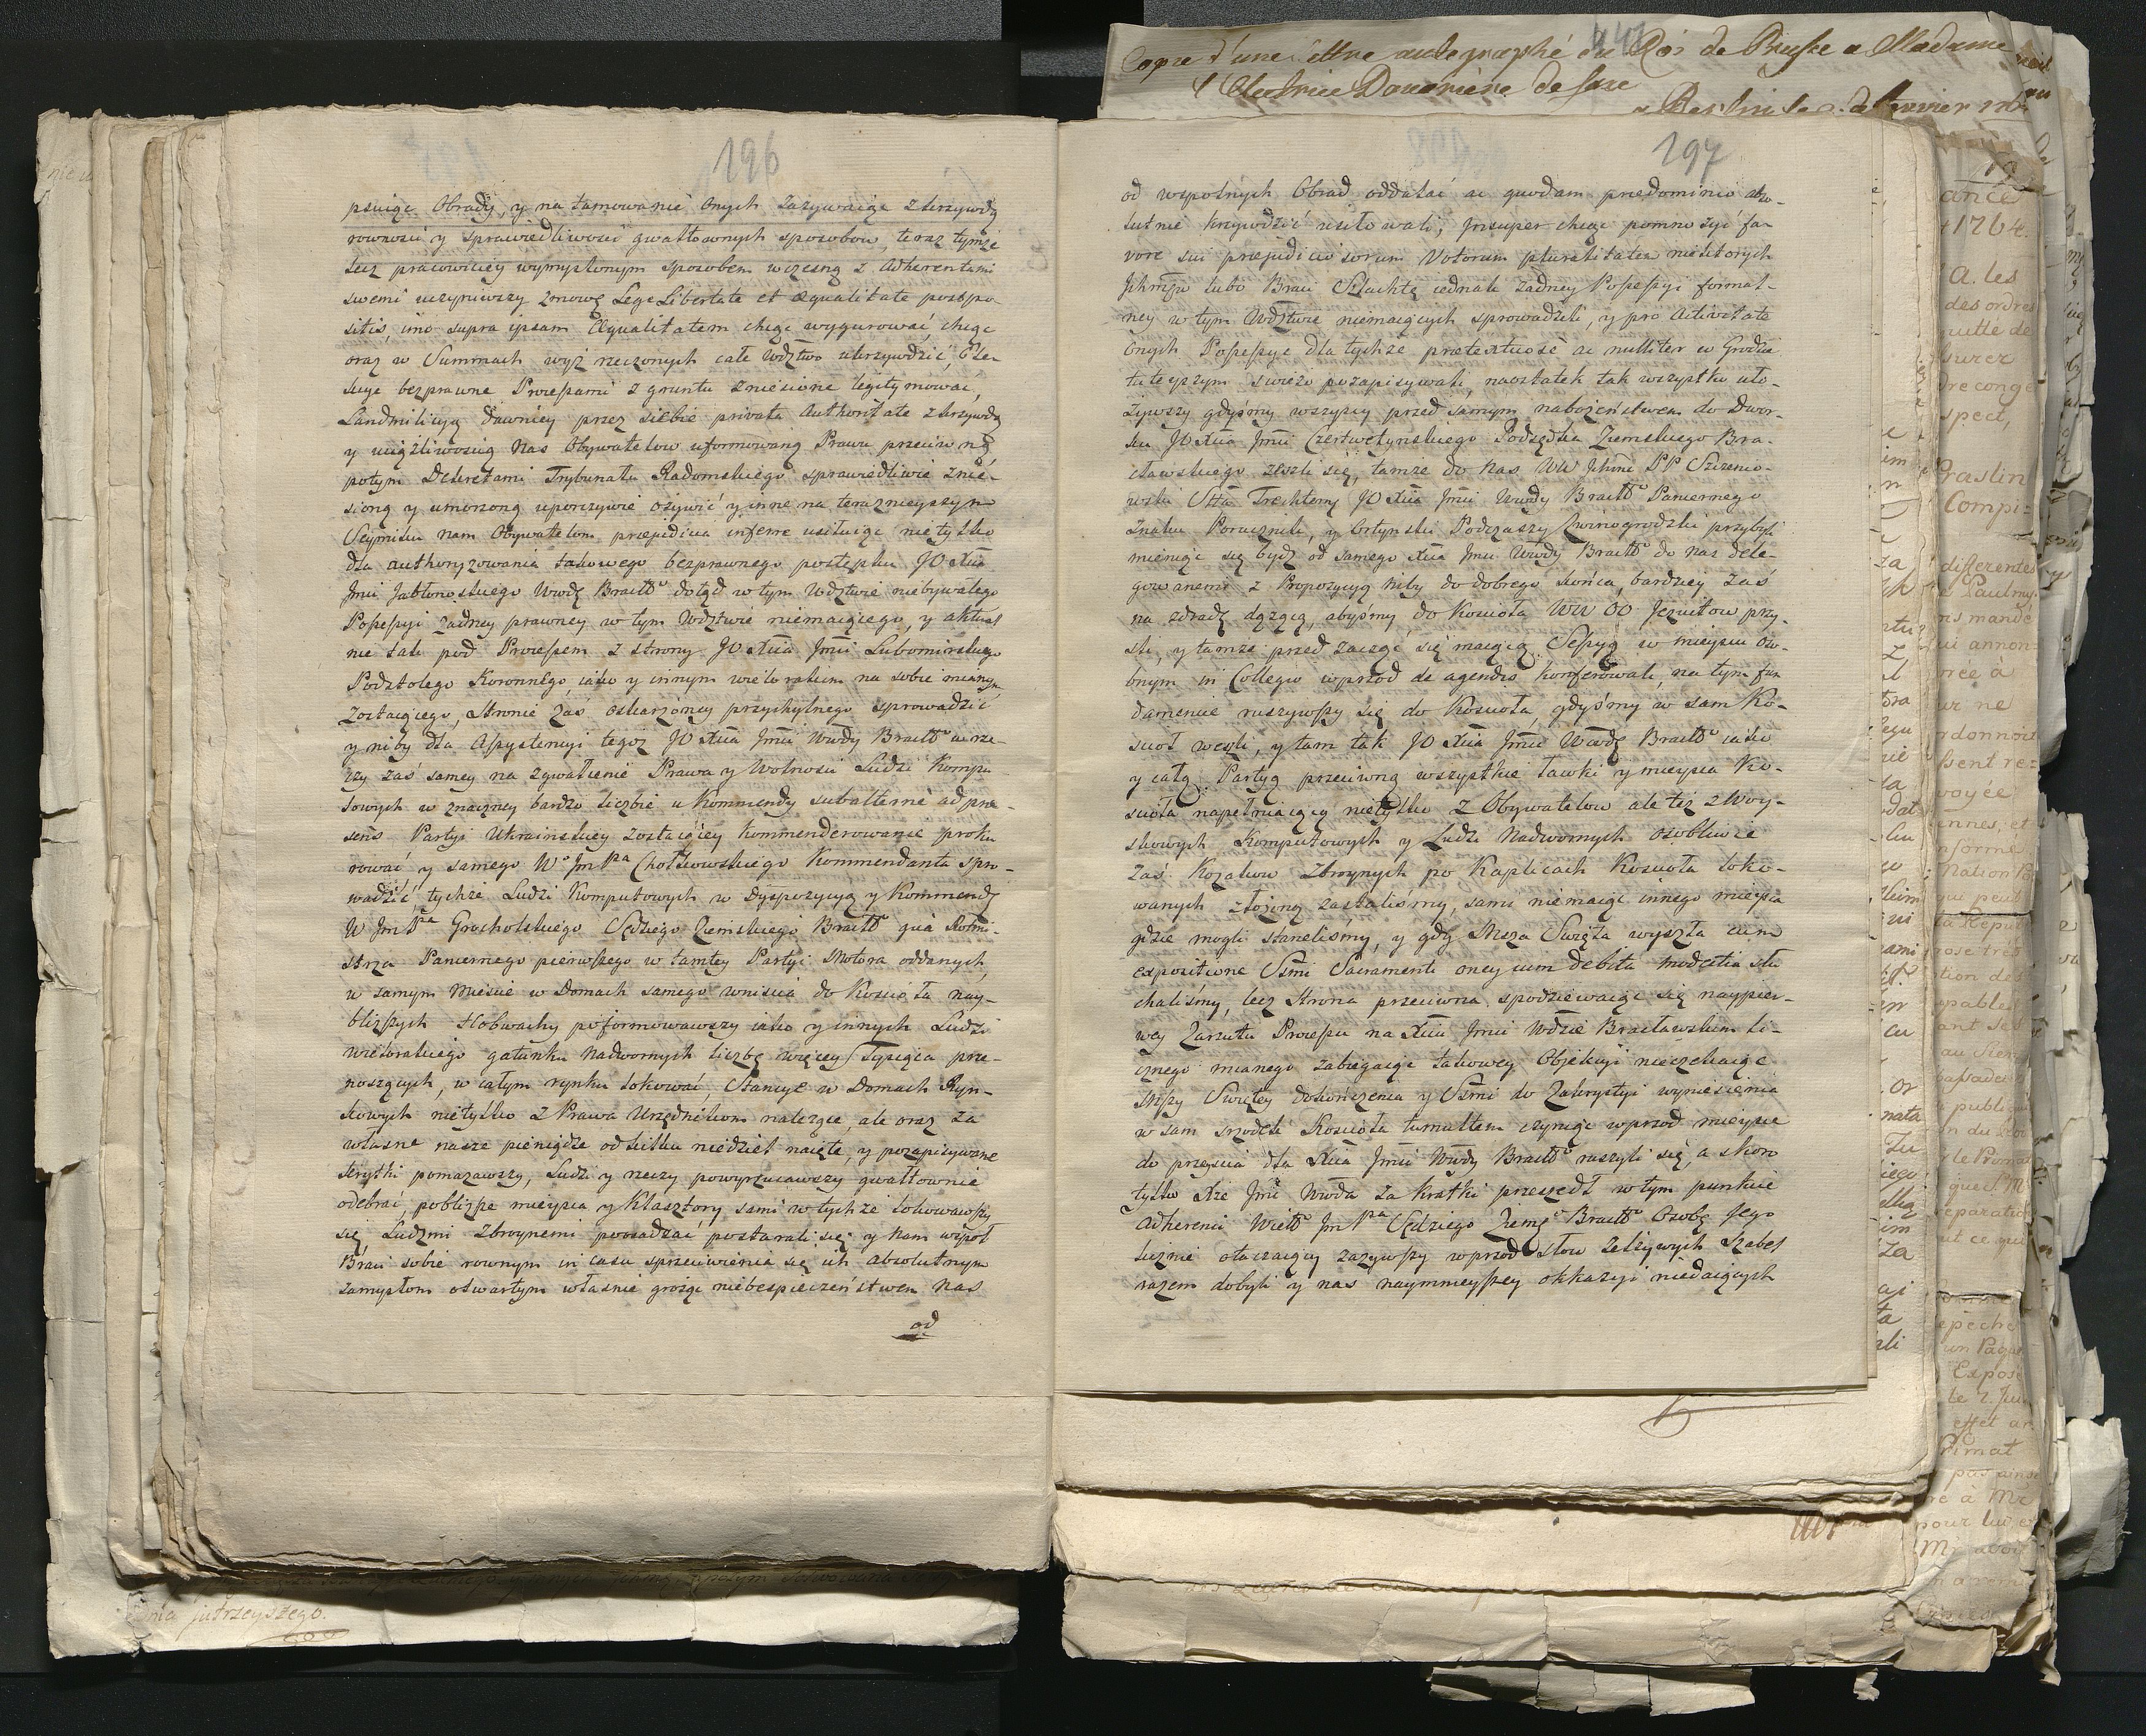 196
psuiąc Obrady, y na tamowanie onych zażywaiąc z krzywdą
rowności y sprawiedliwości gwałtownych sposobow, teraz tymże
lecz pracowiciey wymyslonym sposobem wczesną z Adherentami
swemi uczyniwszy zmowę Lege Libertate et æqualitate postpo-
sitis, imo supra ipsam Æqualitatem chcąc wygurować, chcąc
oraz w Summach wyż rzeczonych całe Wdztwo ukrzywdzić, Ele-
kcye bezprawne Processami z gruntu zniesione legitymować,
Landmilicyą dawniey przez siebie privata Authoritate z krzywdą
y uciążliwością Nas Obywatelow uformowaną Prawu przeciwną
potym Dekretami Trybunału Radomskiego sprawiedliwie znie-
sioną y umorzoną uporczywie ożywić y inne na teraznieyszym
Seymiku nam Obywatelom præjudicia inferre usiłuiąc nietylko
dla authoryzowania takowego bezprawnego postępku JO Xcia
Jmci Jabłonowskiego Wwdę Bracłło dotąd w tym Wdztwie niebywałego
Possessyi żadney prawney w tym Wdztwie niemaiącego, y aktual
nie tak pod Processem z strony JO Xcia Jmci Lubomirskiego
Podstolego Koronnego, iako y innym wielorakim na sobie mianym
zostaiącego, Stronie zaś oskarzoney przychylnego sprowadzić
y niby dla Assystencyi tegoż JO Xcia Jmci Wwdy Bracłło w rze-
czy zaś samey na zgwałcenie Prawa y Wolności Ludzi Kompu-
towych w znaczney bardzo liczbie u Kommendy subalterne ad præ-
sens Partyi Ukrainskiey zostaiącey kommenderowanie proku
rować y samego Wo Jm Pa Chołkowskiego Kommendanta spro-
wadzić, tychże Ludzi Komputowych w Dyspozycyą y Kommendę
W Jm Pa Grocholskiego Sędziego Ziemskiego Bracłło qua Rotmi-
strza Pancernego pierwszego w tamtey Partyi Motora oddanych
w samym Mieście w Domach samego wniścia do Kościoła nay-
bliższych Hobwachy poformowawszy iako y innych Ludzi
wielorakiego gatunku Nadwornych liczbę więcey Tysiąca prze-
noszących, w całym rynku lokować, Stancye w Domach Ryn-
kowych nietylko z Prawa Urzędnikom należące, ale oraz za
własne nasze pieniądze od kilku niedziel naięte, y pozapisywane
krydki pomazawszy, Ludzi y rzeczy powyrzucawszy gwałtownie
odebrać, pobliższe mieysca y Klasztory sami w tychże lokowawszy
się Ludzmi zbroynemi poosadzać postarali się y nam wspoł
Braci sobie rownym in casu sprzeciwienia się ich absolutnym
zamysłom otwartym własnie grożąc niebespieczeństwem nas
od
197
od wspolnych Obrad oddalać ac quodam prædominio abso-
lutnie krzywdzić usiłowali, Insuper chcąc pomnożyć fa-
vore sui præjudiciosorum Votorum pluralitatem niektorych
Ichmciow lubo Braci Szlachtę iednak żadney Possessyi formal-
ney w tym Wdztwie niemaiących sprowadzili, y pro Activitate
onych Possessye dla tychże prætextuose ac nulliter w Grodzie
tuteyszym swieżo pozapisywali, naostatek tak wszystko uło-
żywszy gdysmy wszyscy przed samym nabożeństwem do Dwor-
ku JO Xcia Jmci Czertwetynskiego Podsędka Ziemskiego Bra-
cławskiego zeszli się, tamże do nas WW Ichmc PP Szczenio-
wski Stta Trechtemy JO Xcia Jmci Wwdy Bracłło Pancernego
Znaku Porucznik, y Ortynski Podczaszy Zwinogrodzki przybyli
mieniąc się bydz od samego Xcia Jmci Wwdy Bracłło do nas dele-
gowanemi z Propozycyą niby do dobrego końca, bardziey zaś
na zdradę dążącą, abyśmy do Kościoła WW OO Jezuitow przy-
szli, y tamże przed zacząć się maiącą Sessyą w mieyscu oso-
bnym in Collegio wprzod de agendis konferowali, na tym fun
damencie ruszywszy się do Kościoła, gdyśmy w sam Ko-
ścioł weszli, y tam tak JO Xcia Jmci Wwdę Bracłło iako
y całą Partyą przeciwną wszystkie ławki y mieysca Ko-
ścioła napełniaiącą nietylko z Obywatelow ale też z Woy-
skowych Komputowych y Ludzi Nadwornych osobliwie
zaś Kozakow zbroynych po Kaplicach Kościoła loko-
wanych złożoną zastaliśmy, sami niemaiąc innego mieysca
gdzie mogli stanęliśmy, y gdy Msza Swięta wyszła cum
expositione Ssmi Sacramenti oney cum debita modestia słu
chaliśmy, lecz Strona przeciwna spodziewaiąc się naypier-
wey Zarzutu Processu na Xciu Jmci Wdzie Bracławskim li-
cznego mianego zabiegaiąc takowey Objekcyi nieczekaiąc
Mszy Swiętey dokończenia y Ssmi do Zakrystyi wyniesienia
w sam srzodek Kościoła tumultem czyniąc wprzod mieysce
do przeyscia dla Xcia Jmci Wwdy Bracłło ruszyli się, a skoro
tylko Xże Jmć Wwda za kratki przeszedł w tym punkcie
Adherenci Wielo Jm Pa Sędziego Ziemgo Bracłło Osobę Jego
licznie otaczaiący zażywszy wprzod słow zelżywych Szabel
razem dobyli y nas naymnieyszey okkazyi niedaiących
Copie d'une lettre autographe du Roi de Prusse a Madame
l'Electrice Douariere de Saxe
nia jutrzeyszego.